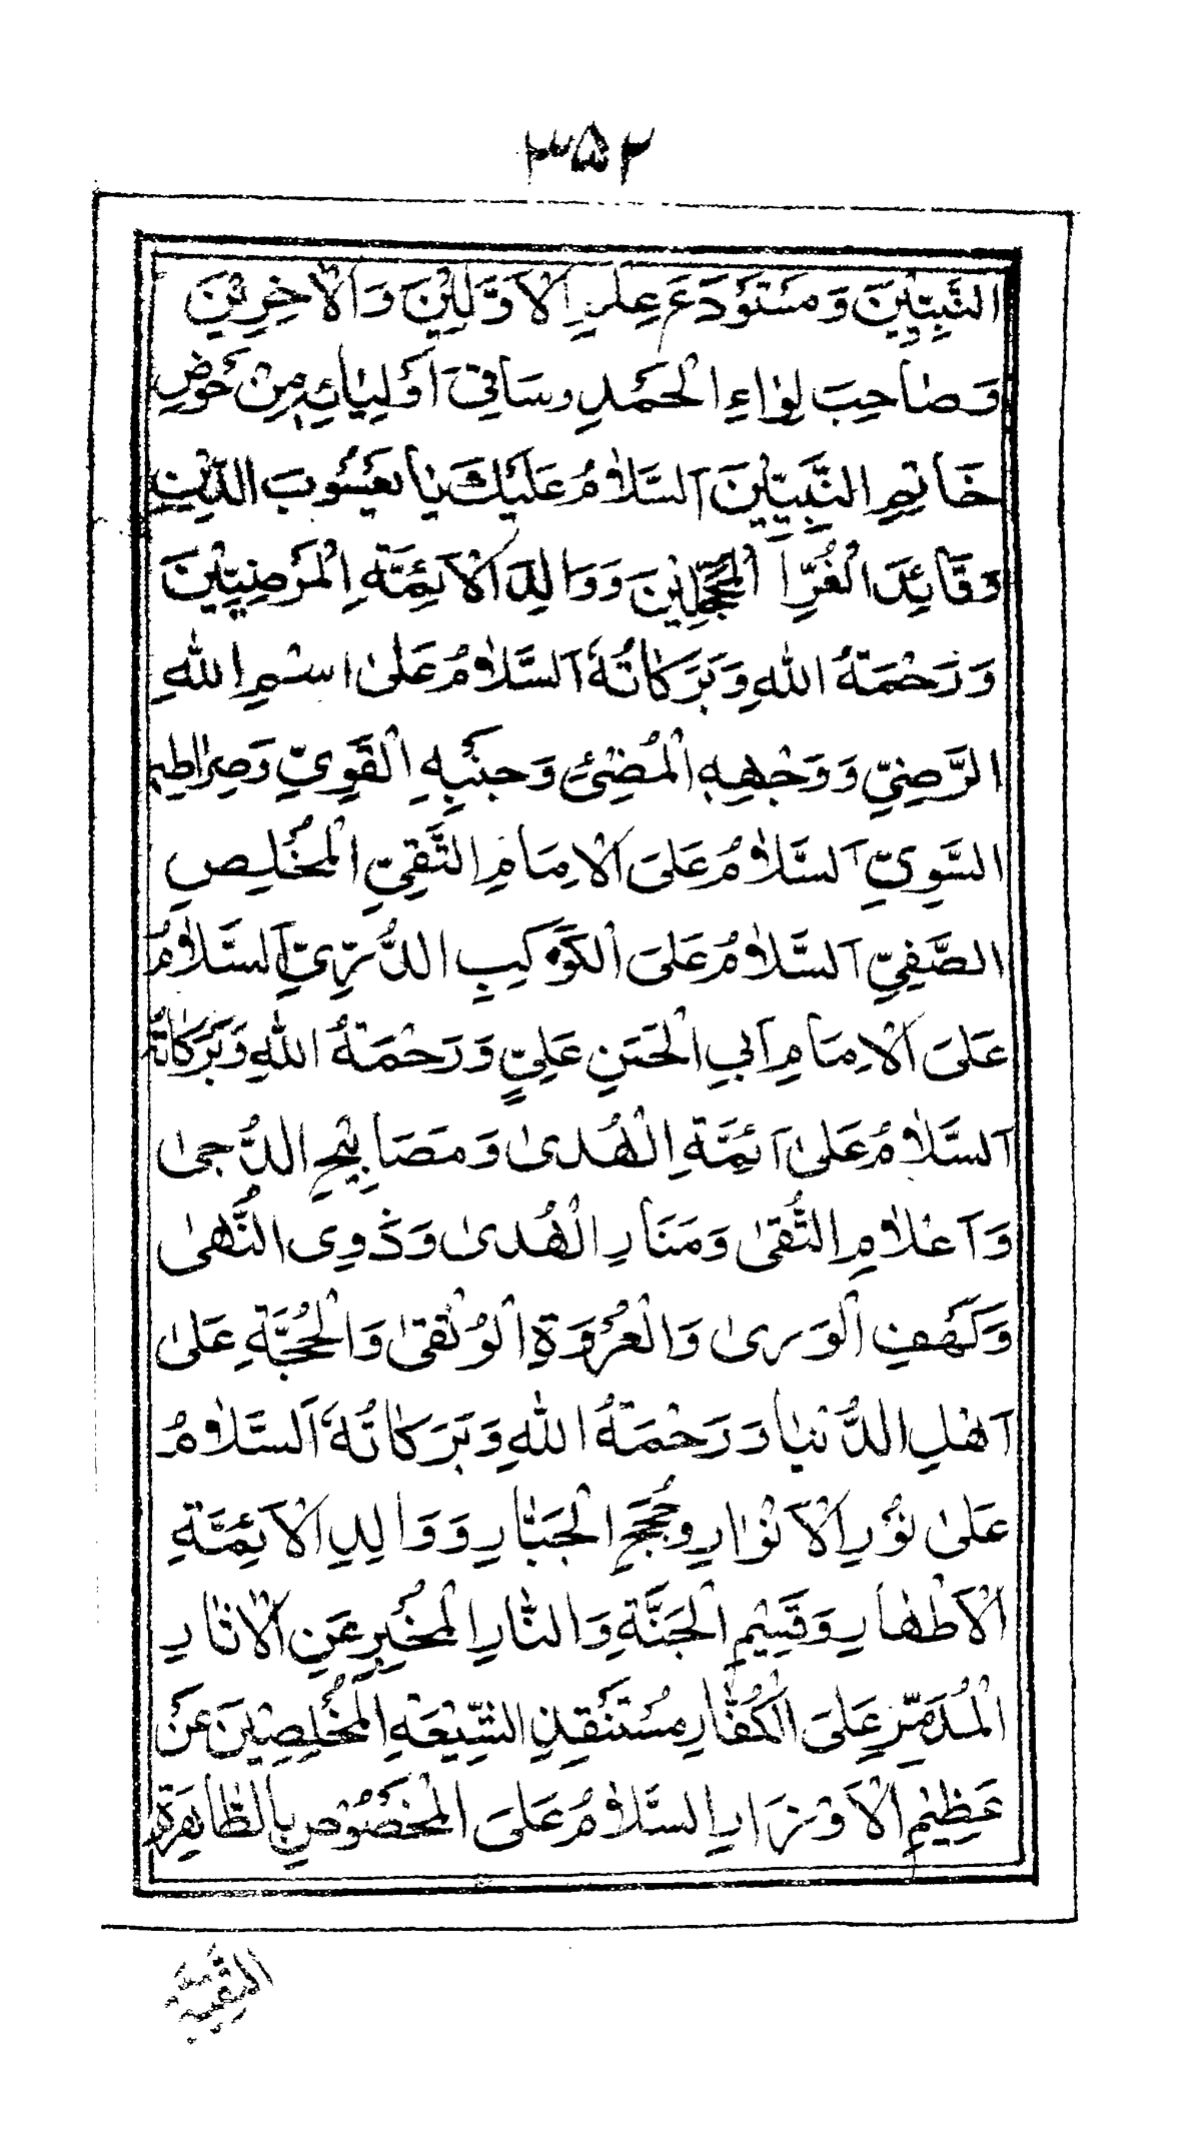 ۳۵۲
النَّبِيّٖينَ وَمُسْتَوْدَعَ عِلْمِ الْاَوَّلِيْنَ وَالْاٰخِرِيْنَ
وَصَاحِبَ لِوَاءِ الْحَمْدِ وسَاقِىَ اَوْلِيٰائِهٖ مِنْ حَوْضِ
خَاتِمِ النَّبِيّٖيْنَ اَلسَّلَامُ عَلَيْكَ يٰا يَعْسُوبَ الدّٖيْنِ
وَقَائِدَ الْغُرِّ الْمُحَجَّلِيْنَ وَوَالِدَ الْاَئِمَّةِ الْمَرْضِيّٖيْنَ
وَرَحْمَةُ اللهِ وَبَرَكَاتُهٗ اَلسَّلَامُ عَلىٰ اسْمِ اللهِ
الرَّضِيِّ وَوَجْهِهِ الْمُضِيْئِ وَجَنْبِهِ الْقَوِيِّ وَصِرَاطِهِ
السَّوِيِّ اَلسَّلَامُ عَلَى الْاِمَامِ التَّقِيِّ الْمُخْلِصِ
الصَّفِيِّ اَلسَّلَامُ عَلَى الْكَوْكَبِ الدُّرِّيِّ اَلسَّلَامُ
عَلَى الْاِمَامِ اَبِي الْحَسَنِ عَلِيٍّ وَرَحْمَةُ اللهِ وَبَرَكَاتُهٗ
اَلسَّلَامُ عَلىٰ اَئِمَّةِ الْهُدىٰ وَمَصَابِيْحِ الدُّجىٰ
وَاَعْلَامِ التُّقىٰ وَمَنَارِ الْهُدىٰ وَذَوِى النُّهىٰ
وَكَهْفِ الْوَرىٰ وَالْعُرْوَةِ الْوُثْقىٰ وَالْحُجَّةِ عَلىٰ
اَهْلِ الدُّنْيٰا وَرَحْمَةُ اللهِ وَبَرَكَاتُهٗ اَلسَّلَامُ
عَلىٰ نُوْرِ الْاَنْوَارِ وحُجَجِ الْجَبَّارِ وَوَالِدِ الْاَئِمَّةِ
الْاَطْهَارِ وَقَسِيْمِ الْجَنَّةِ وَالنَّارِ الْمُخْبِرِ عَنِ الْاٰثَارِ
الْمُدَمِّرِ عَلَى الْكُفَّارِ مُسْتَنْقِذِ الشِّيْعَةِ الْمُخْلِصِيْنَ عَنْ
عَظِيْمِ الْاَوْزَارِ السَّلَامُ عَلَى الْمَخْصُوْصِ بِالطَّاهِرَةِ
التقية